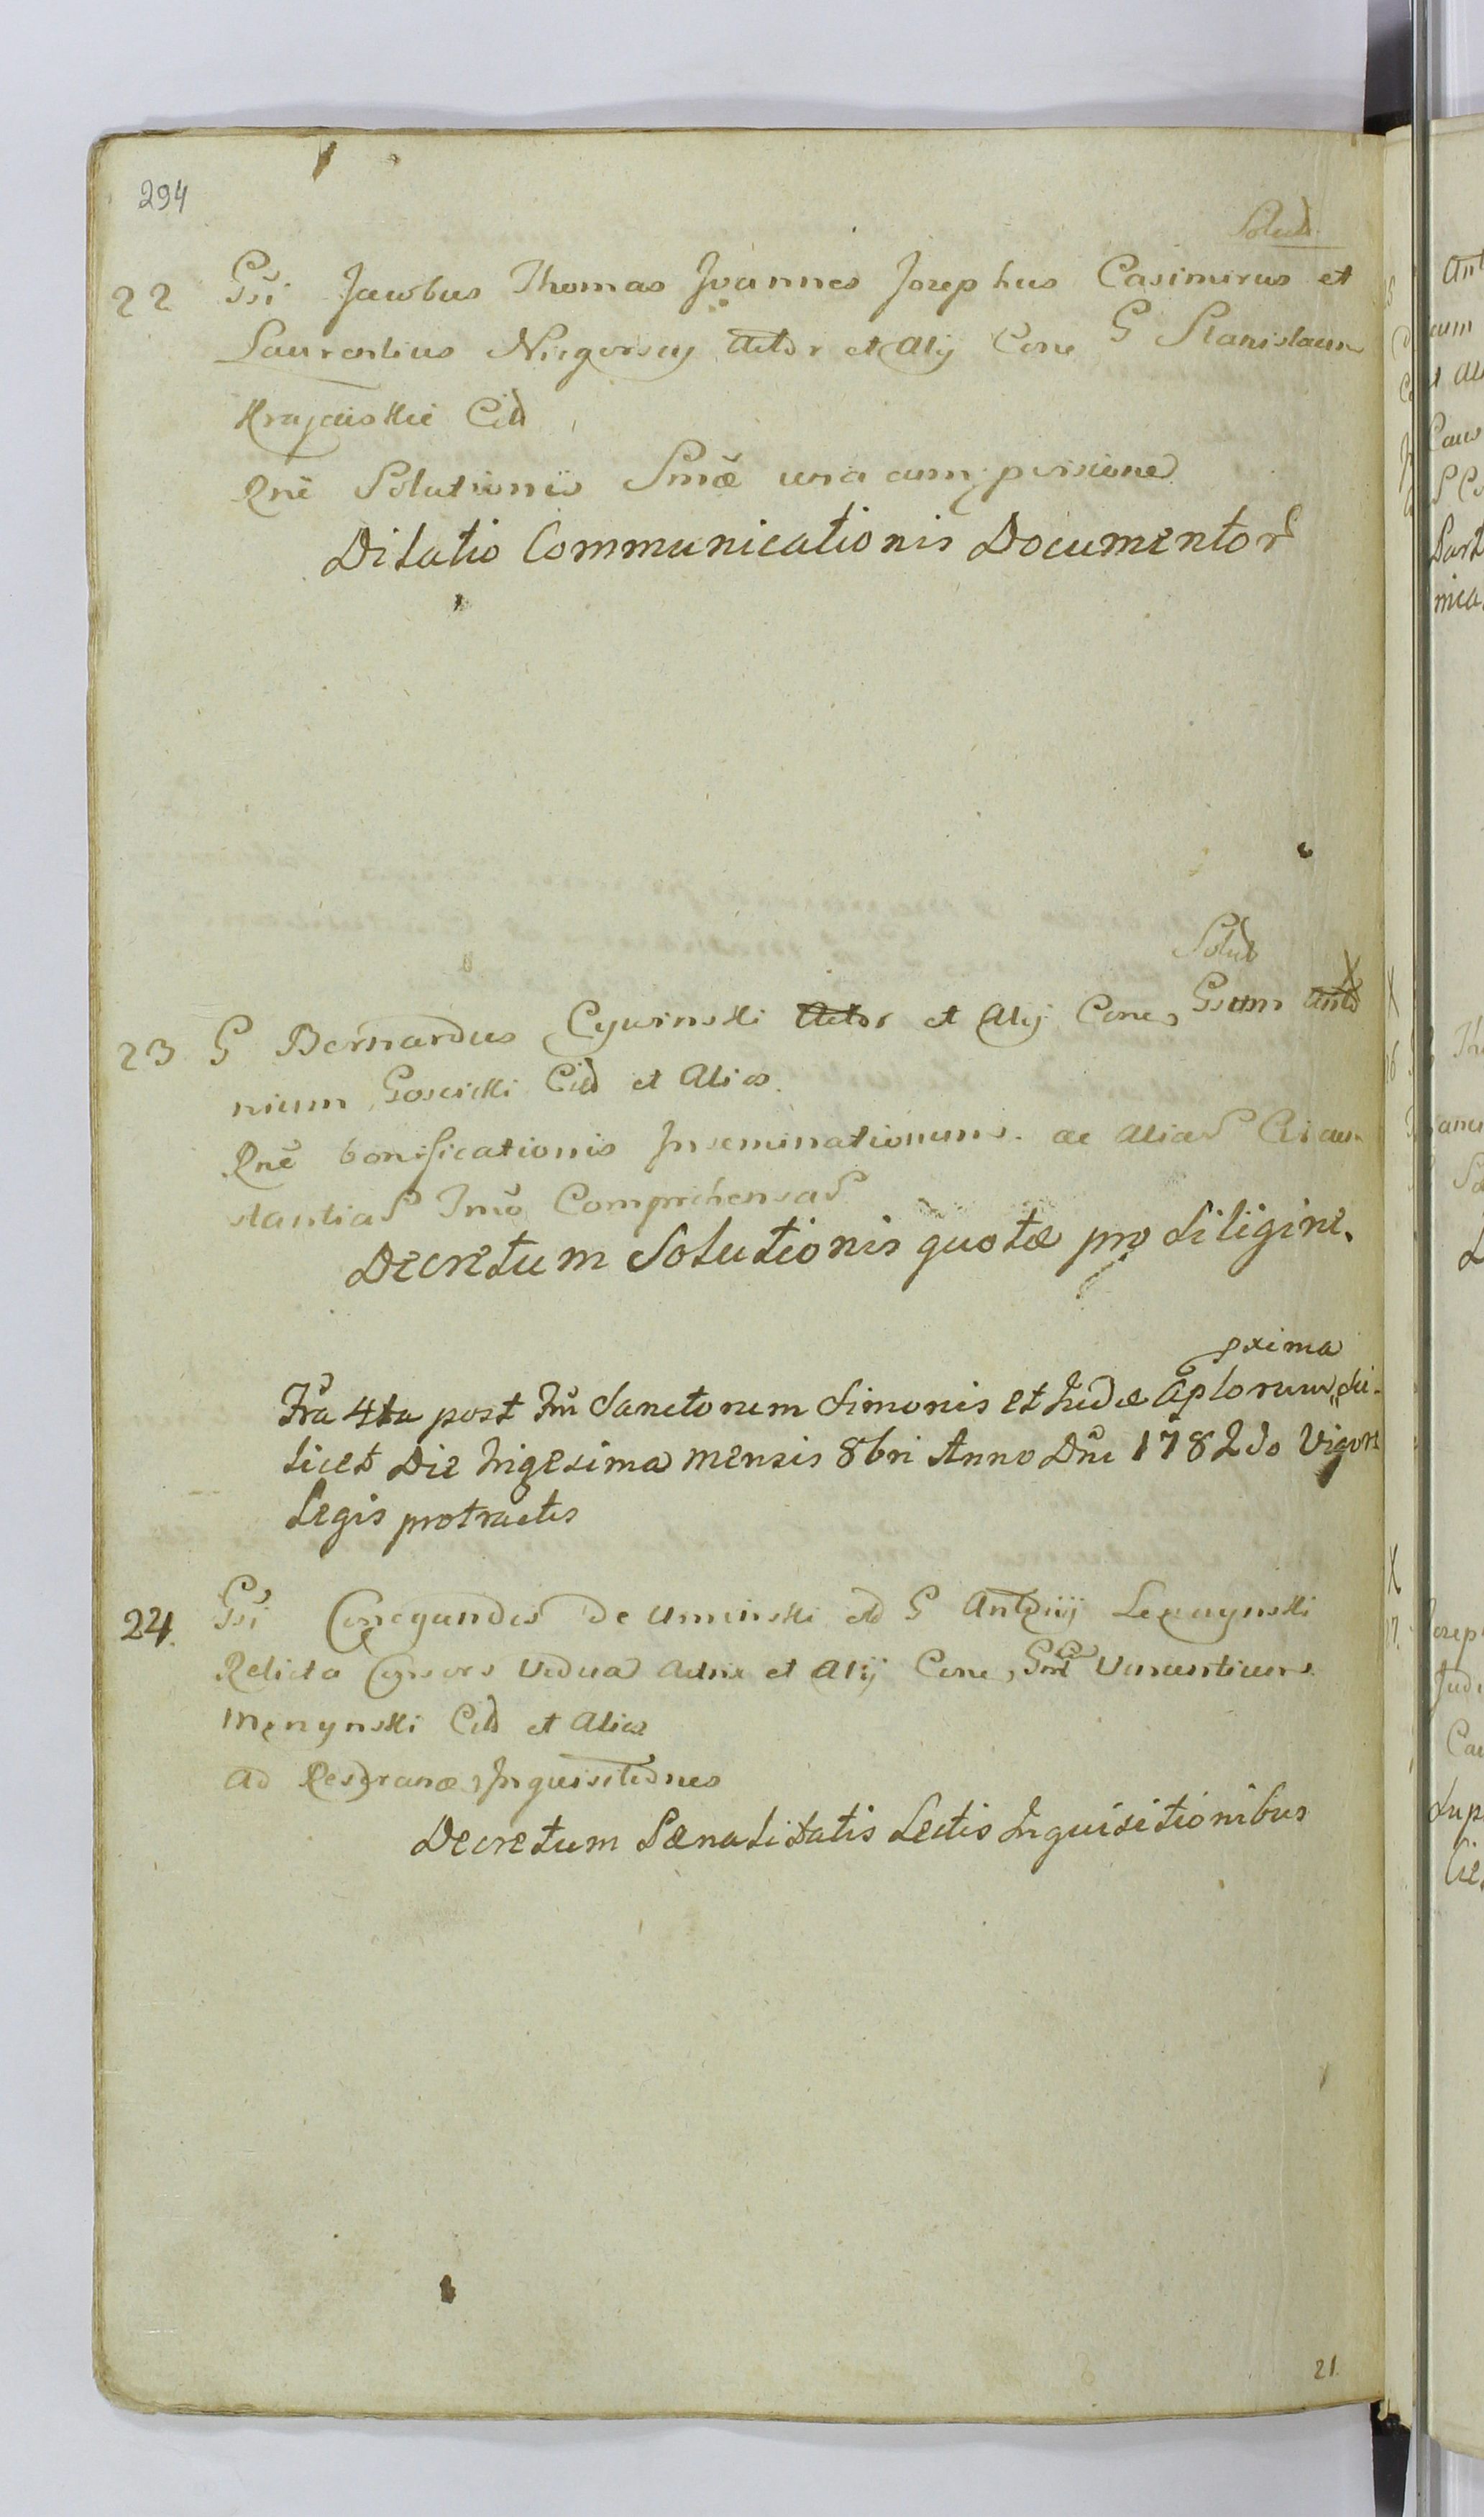 294
Solut
22 Gsi Jacobus Thomas Joannes Josephus Casimirus et
Laurentius Niegorscy Actor et Alij Cone G Stanislaum
Krajewskie Citt
Rne Solutionis Smæ una cum provisione
Dilatio Communicationis Documentor
Solut
23 G Bernardus Cywinski Actor et Alij Cone Gsum Anto
nium Goscicki Citt et Alios
Rne bonificationis Inseminationum ac alias Circum
stantias Tmo Comprehensas
Decretum Solutionis quotæ pro siligine.
pxima
Fra 4ta post Fm Sanctorum Simonis et Judæ Aplorum sci-
licet Die Trigesima mensis 8bri Anno Dni 1782do Vigore
Legis protractis
24. Gsi Conegundis De Uminski et G Antonij
Relicta Consors Vidua Actrix et Alij Cone Gnl Vincentium
Mezynski Citt et Alios
Ad Inquisitiones
Decretum Pænalitatis Lectis Inquisitionibus
21